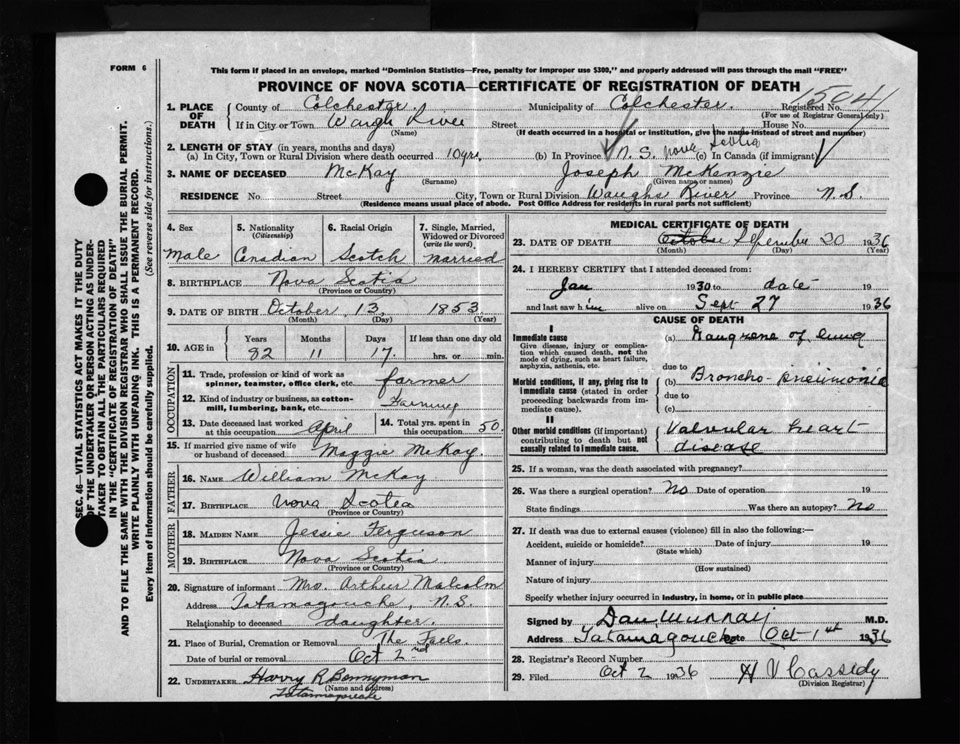 FORM 6
This form if placed in an envelope, marked "Dominion Statistics—Free, penalty for improper use $300," and properly addressed will pass through the mail "FREE"
PROVINCE OF NOVA SCOTIA—CERTIFICATE OF REGISTRATION OF DEATH
1504
1. PLACE OF DEATH { County of Colchester. Municipality of Colchester. Registered No.
(For use of Registrar General only)
If in City or Town Waugh River Street House No.
(Name) (If death occurred in a hospital or institution, give the name instead of street and number)
2. LENGTH OF STAY (in years, months and days)
(a) In City, Town or Rural Division where death occurred 10 yrs. (b) In Province N. S. Nova Scotia (c) In Canada (if immigrant)
3. NAME OF DECEASED McKay Joseph McKenzie
(Surname) (Given name or names)
RESIDENCE No. Street City, Town or Rural Division Waughs River Province N.S.
(Residence means usual place of abode. Post Office Address for residents in rural parts not sufficient)
4. Sex Male
5. Nationality (Citizenship) Canadian
6. Racial Origin Scotch
7. Single, Married, Widowed or Divorced (write the word) Married
8. BIRTHPLACE Nova Scotia
(Province or Country)
9. DATE OF BIRTH October 13 1853
(Month) (Day) (Year)
10. AGE in Years 82 Months 11 Days 17. If less than one day old hrs. or min.
OCCUPATION
11. Trade, profession or kind of work as spinner, teamster, office clerk, etc. farmer
12. Kind of industry or business, as cotton-mill, lumbering, bank, etc. Farming
13. Date deceased last worked at this occupation April
14. Total yrs. spent in this occupation 50.
15. If married give name of wife or husband of deceased Maggie McKay.
FATHER
16. NAME William McKay
17. BIRTHPLACE Nova Scotia
(Province or Country)
MOTHER
18. MAIDEN NAME Jessie Ferguson
19. BIRTHPLACE Nova Scotia
(Province or Country)
20. Signature of informant Mrs. Arthur Malcolm
Address Tatamagouche, N.S.
Relationship to deceased daughter.
21. Place of Burial, Cremation or Removal The Falls
Date of burial or removal Oct 2nd
22. UNDERTAKER Harry R Bonnyman
(Name and address)
Tatamagouche
MEDICAL CERTIFICATE OF DEATH
23. DATE OF DEATH October September 30 1936
(Month) (Day) (Year)
24. I HEREBY CERTIFY that I attended deceased from:
Jan 1930 to date 19
and last saw him alive on Sept 27 1936
CAUSE OF DEATH
I
Immediate cause
Give disease, injury or complication which caused death, not the mode of dying, such as heart failure, asphyxia, asthenia, etc.
(a) Gangrene of lung
due to
Morbid conditions, if any, giving rise to immediate cause (stated in order proceeding backwards from immediate cause).
(b) Broncho-pneumonia
due to
(c)
II
Other morbid conditions (if important) contributing to death but not causally related to immediate cause.
Valvular heart
disease
25. If a woman, was the death associated with pregnancy?
26. Was there a surgical operation? No Date of operation 19
State findings Was there an autopsy? No
27. If death was due to external causes (violence) fill in also the following:—
Accident, suicide or homicide? Date of injury 19
(State which)
Manner of injury
(How sustained)
Nature of injury
Specify whether injury occurred in industry, in home, or in public place
Signed by Dan Murray M.D.
Address Tatamagouche Date Oct-1st 1936
28. Registrar's Record Number
29. Filed Oct 2 1936 H V Cassidy
(Division Registrar)
SEC. 46—VITAL STATISTICS ACT MAKES IT THE DUTY
OF THE UNDERTAKER OR PERSON ACTING AS UNDER-
TAKER TO OBTAIN ALL THE PARTICULARS REQUIRED
IN THE "CERTIFICATE OF REGISTRATION OF DEATH"
AND TO FILE THE SAME WITH THE DIVISION REGISTRAR WHO SHALL ISSUE THE BURIAL PERMIT.
WRITE PLAINLY WITH UNFADING INK. THIS IS A PERMANENT RECORD.
Every item of information should be carefully supplied. (See reverse side for instructions.)